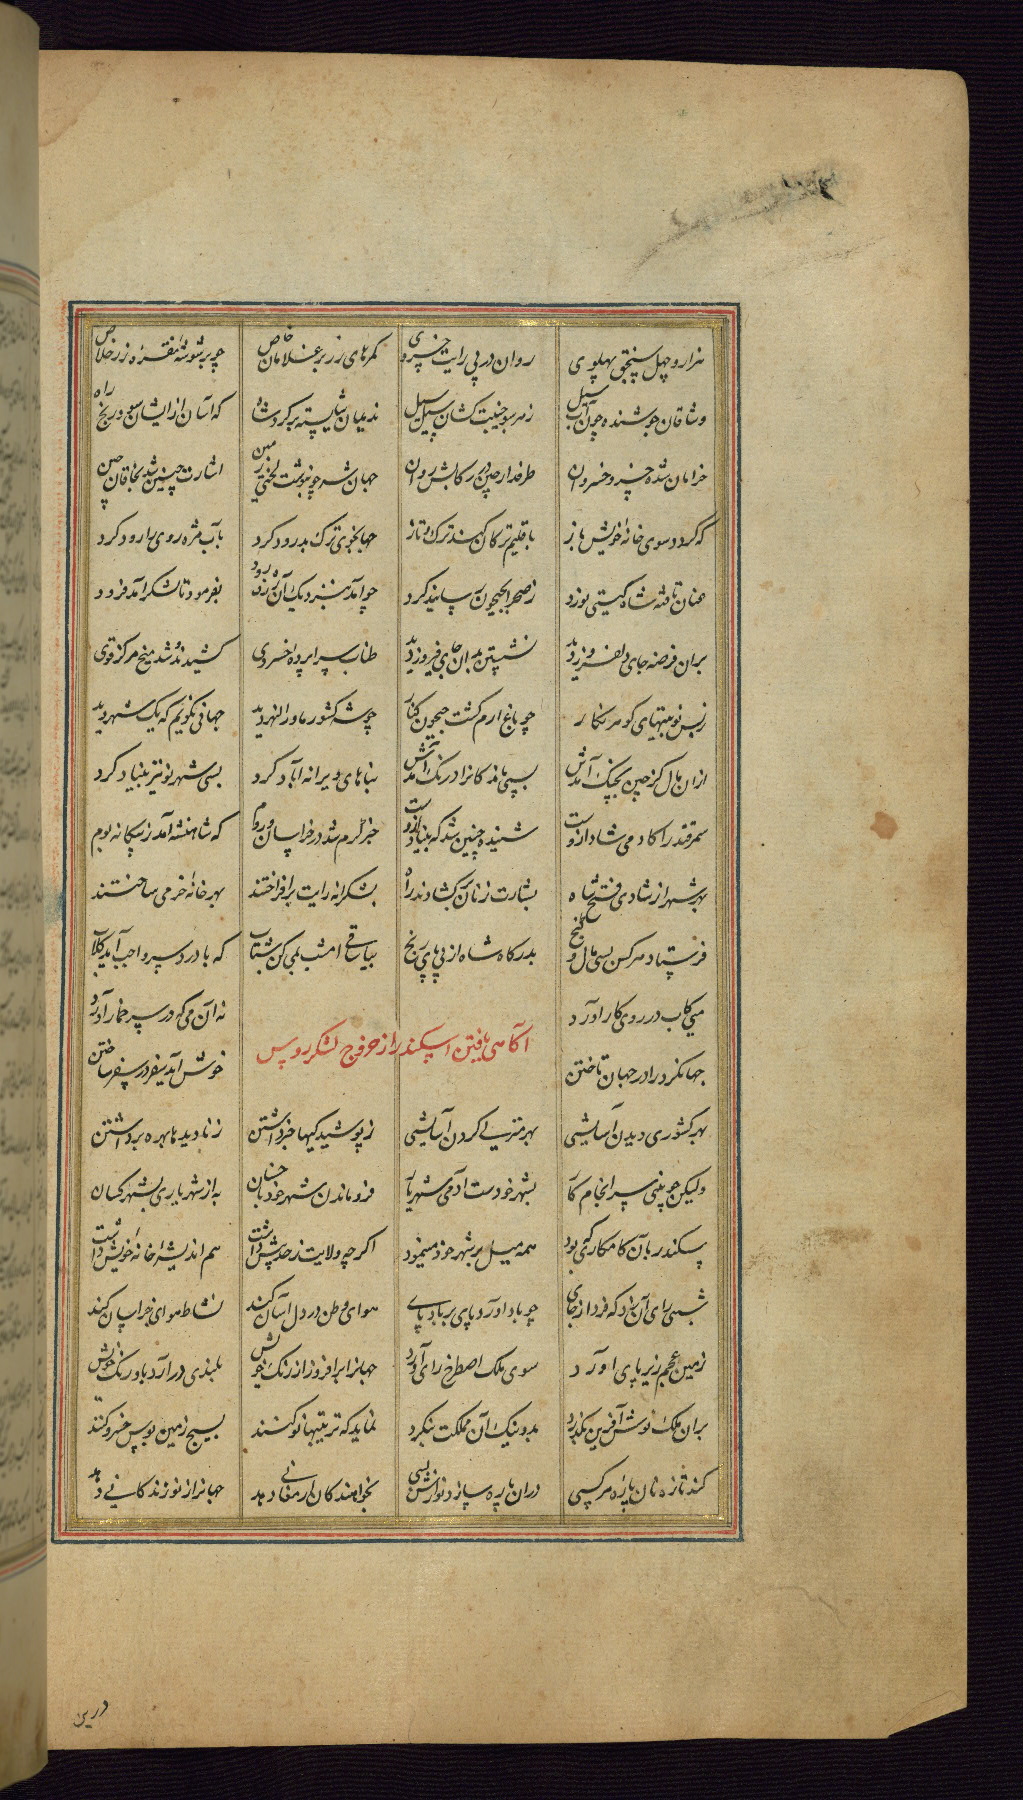 هزار و چهل سنجق پهلوی روان در پی رایت خسروی کمرهای زر بر غلامان خاص چو بر شوشه نقره زر خلاص
وشاقان جوشنده چون آب سیل ز هر سو جنیبت کشان سیل سیل ندیمان شایسته بر گرد شاه که آسان از ایشان شود رنج راه
خرامان شده خسرو خسروان طرفدار چین در رکابش روان جهان شهر چو پیوشت لختی زمین اشارت چنین شد بخاقان چین
که گردد سوی خانه خویش باز باقلیم ترکان کند ترک و تاز جهانجوی ترک بدرود کرد بآب مژه روی را رود کرد
عنان تافته شاه گیتی نورد ز صحرا بجیحون رسانید گرد چو آمد بنزدیک آن ژرف رود بفرمود تا لشکر آمد فرود
بران فرضه جای دلفروز دید نشستن بدان جای فیروز دید طناب سراپرده خسروی کشیده شد میخ مرکز قوی
ز بس نوبتیهای گوهر نگار چو باغ ارم گشت جیحون کنار چو شه کشور ماورالنهر دید جهانی نگویم که یک شهر دید
ازان مال کز چین بچنگ آمدش بسی ماند کانرا درنگ آمدش بناهای ویرانه آباد کرد بسی شهر نو نیز بنیاد کرد
سمرقند را کادمی شاد ازوست شنیدم چنین شد که بنیاد ازوست خبر گرم شد در خراسان و روم که شاهنشه آمد ز بیگانه بوم
بهر شهر از شادی فتح شاه بشارت زنان برگشادند راه بشکرانه رایت برافراختند بهر خانه خرمی ساختند
فرستاد هر کس بسی مال و گنج بدرگاه شاه از پی پای رنج بیا ساقی امشب بمی کن شتاب که با درد سر واجب آمد گلاب
می کاب در روی کار آورد نه آن می که در سر خمار آورد
آگاهی یافتن اسکندر از خروج لشکر روس
جهانگرد را در جهان تاختن خوش آید سفر در سفر ساختن
بهر کشوری دیدن آسایشی بهر منزلی کردن آسایشی ز پوشیدگیها خبر داشتن ز نادیدها بهره برداشتن
ولیکن چو بینی سرانجام کار بشهر خودست آدمی شهریار فرو ماندن شهر خود با خسان به از شهریاری بشهر کسان
سکندر بآن کامکاری که بود همه میل بر شهر خود مینمود اگرچه ولایت ز حد بیش داشت هم اندیشه خانه خویش داشت
شبی رای آن زد که فردا ز جای چو باد آورد پای بر بادپای هوای وطن در دل آسان کند نشاط هوای خراسان کند
زمین عجم زیر پای آورد سوی ملک اصطرخ رای آورد جهانرا برافروزد از رنگ خویش بلندی درآرد باورنگ خویش
بران ملک نوش آفرین بگذرد بد و نیک آن مملکت بنگرد نماید که ترتیبها نو کنند بسیج زمین بوس خسرو کنند
کند تازه نان پاره هر کسی دران باره سازد نوازش بسی بخواهندگان ارمغانی دهد جهانرا ز نو زندگانی دهد
درین